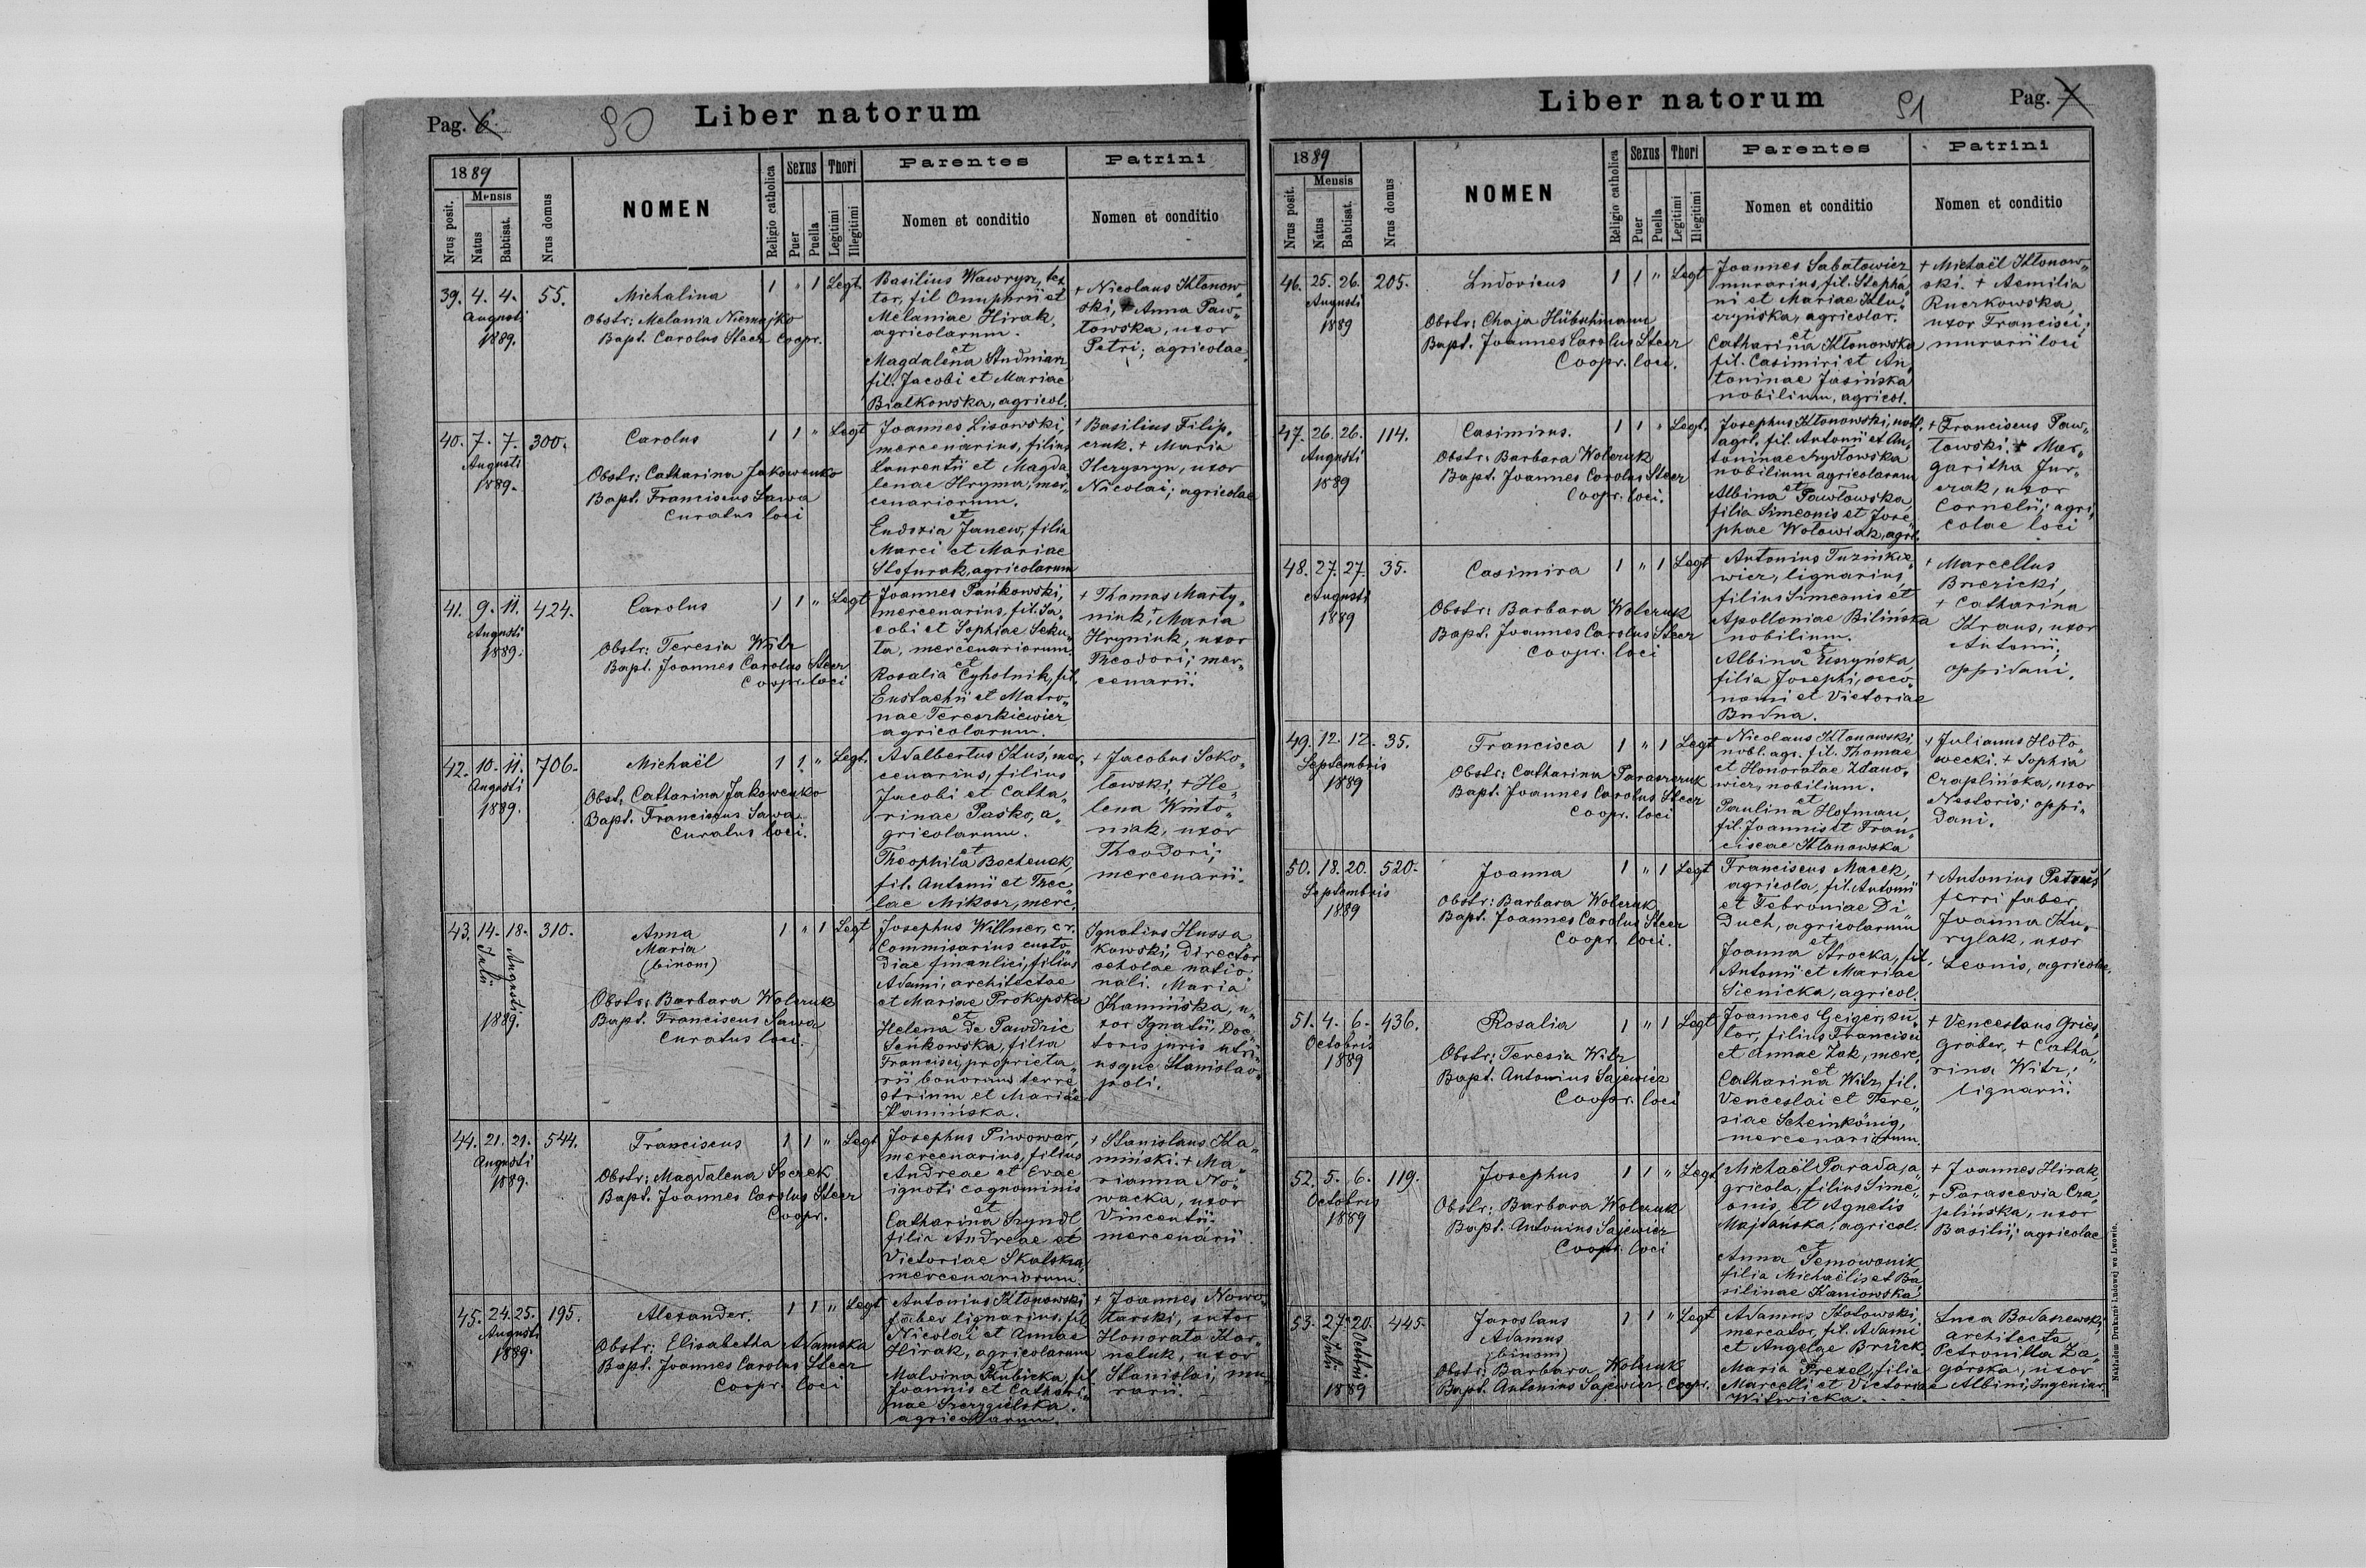 Pag. 6.
90
Liber natorum
1889
Nrus posit.
Mensis
Natus
Babtisat.
Nrus domus
NOMEN
Religio catholica
Sexus
Puer
Puella
Thori
Legitimi
Illegitimi
Parentes
Nomen et conditio
Patrini
Nomen et conditio
39. 4. 4. 55.
Augusti
1889.
Michalina
Obstr: Melania Niemajko
Bapt. Carolus Steer Coopr.
1 " 1 Legt.
Basilius Wawryn, tex
tor, fil Onuphrii et
Melaniae Hirak,
agricolarum.
et
Magdalena Studniarz,
fil. Jacobi et Mariae
Bialkowska, agricol.
+ Nicolaus Kłonow„
ski, + Anna Paw„
łowska, uxor
Petri; agricolae.
40. 7. 7. 300.
Augusti
1889.
Carolus
Obstr: Catharina Jakowenko
Bapt. Franciscus Sawa
Curatus loci
1 1 " Legt
Joannes Lisowski,
mercenarius, filius
Laurentii et Magda
lenae Hryma, mer„
cenariorum.
et
Eudoxia Janew, filia
Marci et Mariae
Stofurak, agricolarum
Basilius Filip„
czuk. + Maria
Heryszyn, uxor
Nicolai; agricolae
41. 9. 11. 424.
Augusti
1889.
Carolus
Obstr: Teresia Witz
Bapt. Joannes Carolus Steer
Coopr. loci
1 1 " Legt
Joannes Pańkowski,
mercenarius, fil. Ja„
cobi et Sophiae Seku„
ta, mercenariorum.
et
Rosalia Cyhotnik, fil.
Eustachii et Matro„
nae Tereszkiewicz
agricolarum.
+ Thomas Marty„
niuk + Maria
Hryniuk, uxor
Theodori; mer„
cenarii.
42. 10. 11. 706.
Augusti
1889.
Michaël
Obst. Catharina Jakowenko
Bapt. Franciscus Sawa
Curatus loci.
1 1 " Legt.
Adalbertus Kus, mer„
cenarius, filius
Jacobi et Catha„
rinae Paśko, a„
gricolarum.
et
Theophila Bochenek,
fil. Antonii et Thec„
lae Mikosz, merc.
+ Jacobus Soko„
łowski, + He„
lena Winto„
niak, uxor
Theodori;
mercenarii.
43. 14. 18. 310.
Julii
Augusti
1889.
Anna
Maria
(binom)
Obstr: Barbara Wolczuk
Bapt. Franciscus Sawa
Curatus loci.
1 " 1 Legt
Josephus Willner, c.r.
Commisarius custo„
diae finanlici, filius
Adami, architectae
et Mariae Prokopska
et
Helena de Pawdzic
Seńkowska, filia
Francisci, proprieta„
rii bonorum terre
strium et Mariae
Kamińska.
Ignatius Hussa
kowski, Director
scholae natio„
nali. Maria
Kamińska, u„
xor Ignatii, Doc„
toris juris utri„
usque Stanislao„
poli.
44. 21. 21. 544.
Augusti
1889.
Franciscus
Obstr: Magdalena Soczek
Bapt. Joannes Carolus Steer
Coopr.
1 1 " Legt
Josephus Piwowar,
mercenarius, filius
Andreae et Evae
ignoti cognominis
et
Catharina Szyndl,
filia Andreae et
Victoriae Skalska,
mercenariorum.
+ Stanislaus Ka„
miński. + Ma„
rianna No„
wacka, uxor
Vincentii.
mercenarii
45. 24. 25. 195.
Augusti
1889.
Alexander.
Obstr: Elisabetha Adamska
Bapt. Joannes Carolus Steer
Coopr. loci
1 1 " Legt
Antonius Kłonowski
faber lignarius, fil
Nicolai et Annae
Hirak, agricolarum
et
Malvina Kubicka, fil
Joannis et Cathari„
nae Szczygielska.
agricolarum.
+ Joannes Nowo„
tarski, sutor
Honorata Kor„
neluk, uxor
Stanislai, mu„
rarii.
Liber natorum
91
Pag. 7
1889
Nrus posit.
Mensis
Natus
Babtisat.
Nrus domus
NOMEN
Religio catholica
Sexus
Puer
Puella
Thori
Legitimi
Illegitimi
Parentes
Nomen et conditio
Patrini
Nomen et conditio
46. 25. 26. 205.
Augusti
1889
Ludovicus
Obstr: Chaja Hübschmann
Bapt. Joannes Carolus Steer
Coopr. loci.
1 1 " Legt
Joannes Sabatowicz
murarius, fil. Stepha„
ni et Mariae Klu„
czyńska, agricolar.
et
Catharina Kłonowska
fil. Casimiri et An„
toninae Jasińska
nobilium, agricol.
+ Michaël Kłonow„
ski. + Aemilia
Ruczkowska,
uxor Francisci;
murarii loci
47. 26. 26. 114.
Augusti
1889
Casimirus.
Obstr: Barbara Wolczuk
Bapt. Joannes Carolus Steer
Coopr. loci.
1 1 " Legt.
Josephus Kłonowski, nobl.
agrl. fil. Antonii et An„
toninae Szydłowska
nobilium agricolarum
et
Albina Pawłowska,
filia Simeonis et Jose„
phae Wołowiak, agrl.
+ Franciscus Paw„
łowski. + Mar„
garitha Jur„
czak, uxor
Cornelii; agri„
colae loci
48. 27. 27. 35.
Augusti
1889
Casimira
Obstr: Barbara Wolczuk
Bapt. Joannes Carolus Steer
Coopr. loci
1 " 1 Legt
Antonius Tuzinkie„
wicz, lignarius,
filius Simeonis et
Apolloniae Bilińska
nobilium.
et
Albina Uszyńska,
filia Josephi, oeco„
nomi et Victoriae
Budna.
+ Marcellus
Brzezicki,
+ Catharina
Kraus, uxor
Antonii;
oppidani.
49. 12. 12. 35.
Septembris
1889
Francisca
Obstr: Catharina Paraszczuk
Bapt. Joannes Carolus Steer
Coopr. loci
1 " 1 Legt
Nicolaus Kłonowski
nobl. agr. fil. Thomae
et Honoratae Zdano„
wicz, nobilium.
et
Paulina Hofman,
fil. Joannis et Fran„
ciscae Kłonowska
+ Julianus Hoło„
wecki. + Sophia
Czaplińska, uxor
Nestoris; oppi„
dani.
50. 18. 20. 520.
Septembris
1889
Joanna
Obstr: Barbara Wolczuk
Bapt. Joannes Carolus Steer
Coopr. loci.
1 " 1 Legt
Franciscus Macek,
agricola, fil. Antonii
et Febroniae Di„
Duch, agricolarum
et
Joanna Strocka, fil.
Antonii et Mariae
Sienicka, agricol.
+ Antonius Petruś
ferri faber,
Joanna Ku„
rylak, uxor
Leonis, agricolae.
51. 4. 6. 436.
Octobris
1889
Rosalia
Obstr: Teresia Witz
Bapt. Antonius Sajewicz
Coopr. loci
1 " 1 Legt
Joannes Geiger, su„
tor, filius Francisci
et Annae Zak, merc.
et
Catharina Witz, fil.
Venceslai et Tere„
siae Scheinkönig,
mercenariorum.
+ Venceslaus Gries„
graber, + Catha„
rina Witz;
lignarii.
52. 5. 6. 119.
Octobris
1889
Josephus
Obstr: Barbara Wolczuk
Bapt. Antonius Sajewicz
Coopr. loci
1 1 " Legt
Michaël Parada, a„
gricola, filius Sime„
onis, et Agnetis
Majdańska, agricol.
et
Anna Semowonik,
filia Michaëlis et Ba„
silinae Kaniowska.
+ Joannes Hirak,
+ Parascevia Cza„
plińska, uxor
Basilii; agricolae
53. 27. 20. 445.
Julii
Octobris
1889
Jaroslaus
Adamus
(binom)
Obstr: Barbara Wolczuk
Bapt. Antonius Sajewicz, Coopr.
1 1 " Legt
Adamus Kotowski,
mercator, fil. Adami
et Angelae Brück.
et
Maria Prexel, filia
Marcelli et Victoriae
Witwicka.
Luca Bodaszewski,
architecta,
Petronilla Za„
górska, uxor
Albini, Ingeniar.
Nakładem Drukarni Ludowej we Lwowie.